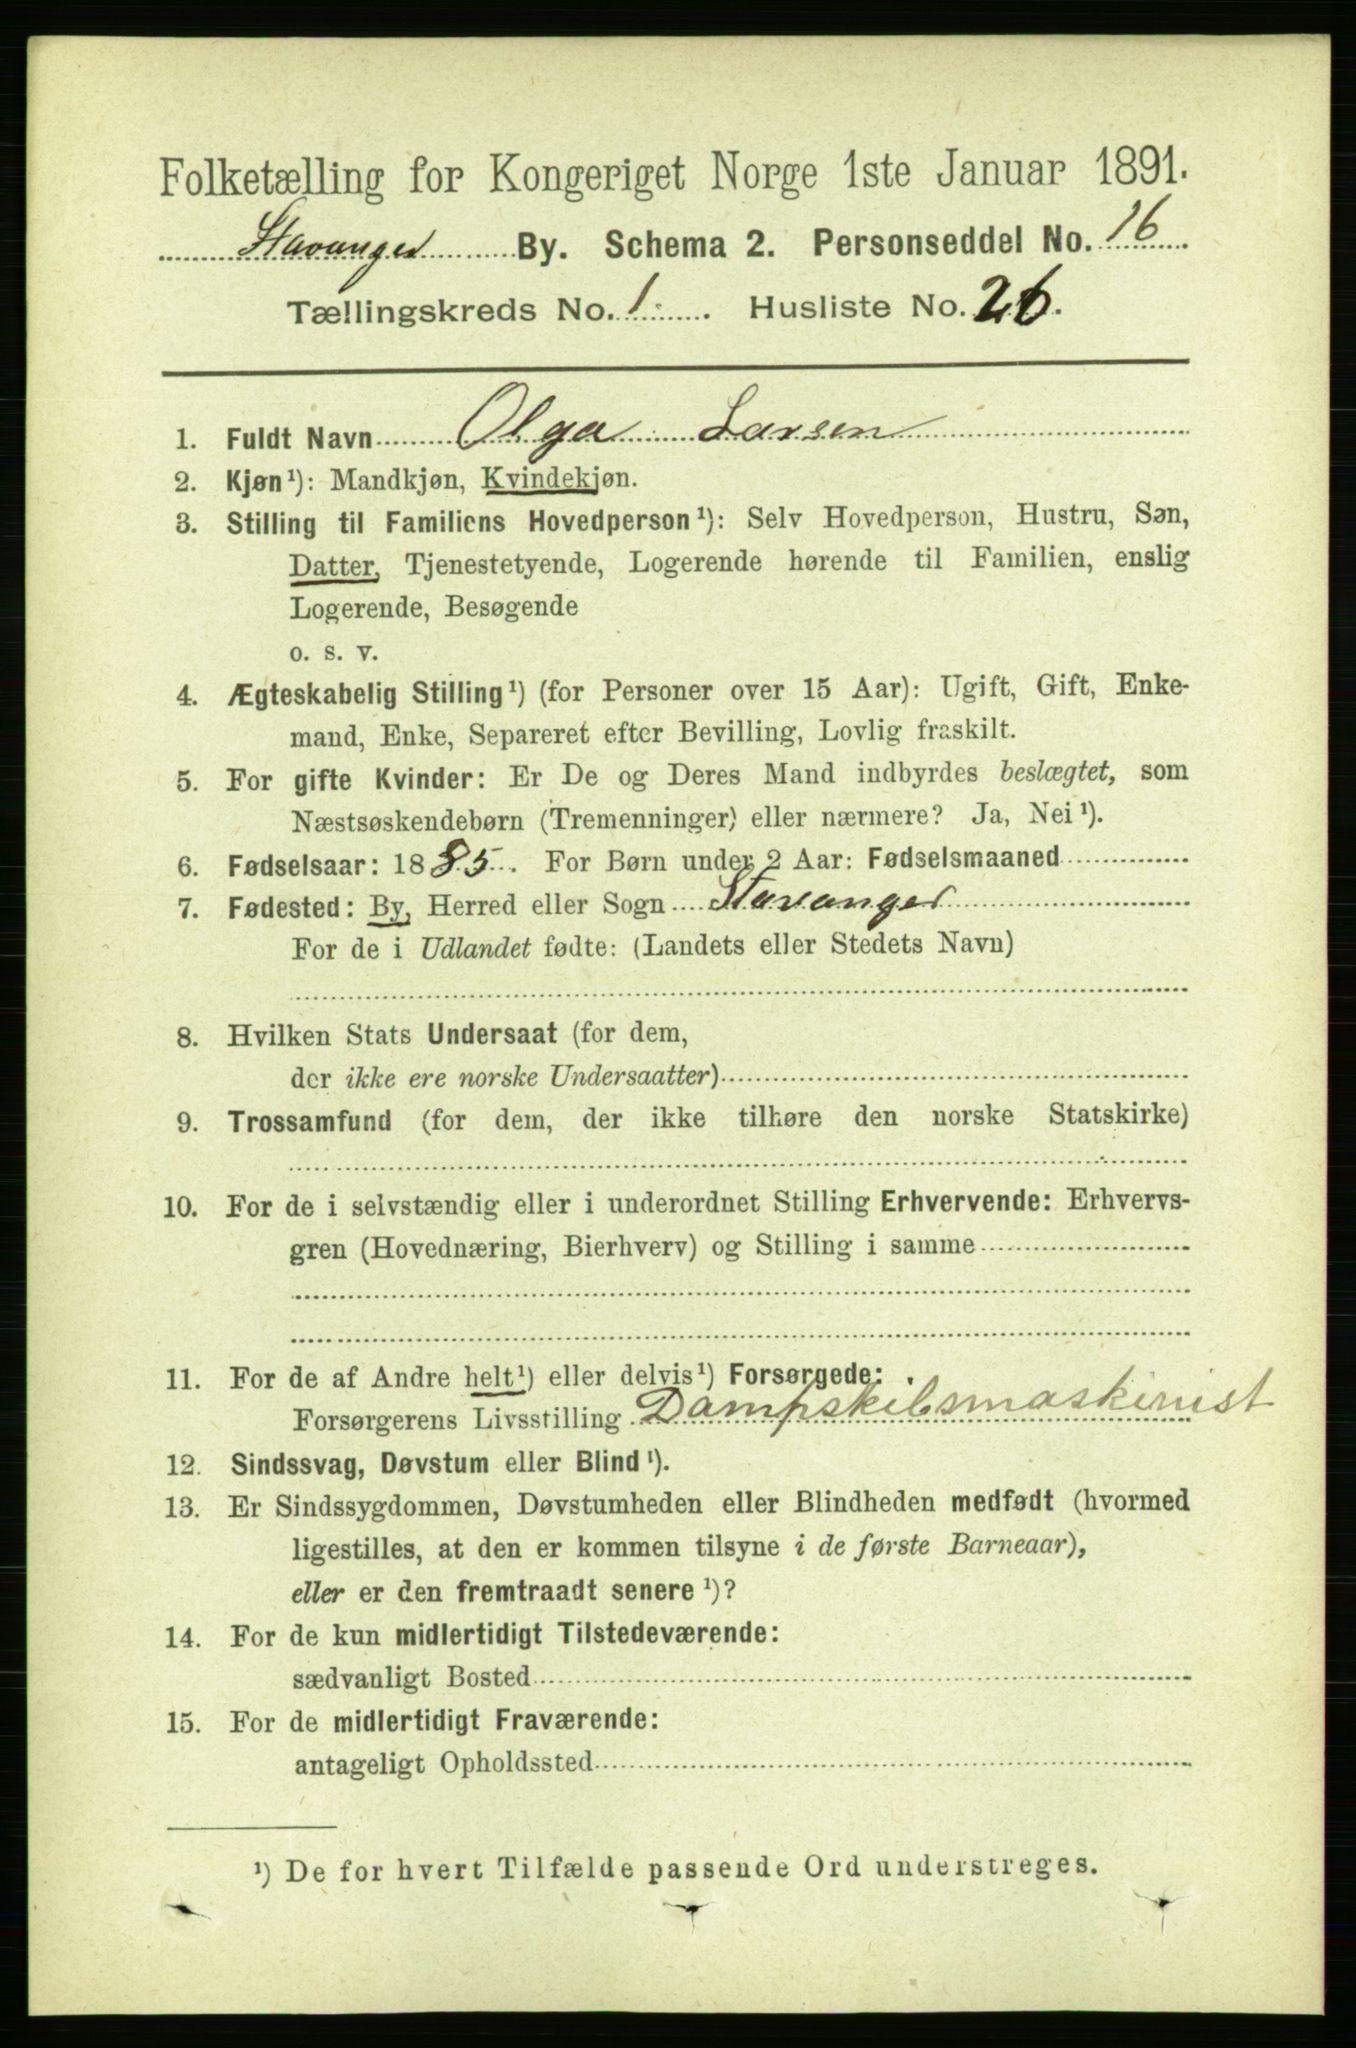 Folketælling for Kongeriget Norge 1ste Januar 1891.
Stavanger By. Schema 2. Personseddel No. 16
Tællingskreds No. 1. Husliste No. 26.
1. Fuldt Navn Olga Larsen
2. Kjøn¹): Mandkjøn, Kvindekjøn.
3. Stilling til Familiens Hovedperson¹): Selv Hovedperson, Hustru, Søn,
Datter, Tjenestetyende, Logerende hørende til Familien, enslig
Logerende, Besøgende
o. s. v.
4. Ægteskabelig Stilling¹) (for Personer over 15 Aar): Ugift, Gift, Enke-
mand, Enke, Separeret efter Bevilling, Lovlig fraskilt.
5. For gifte Kvinder: Er De og Deres Mand indbyrdes beslægtet, som
Næstsøskendebørn (Tremenninger) eller nærmere? Ja, Nei¹).
6. Fødselsaar: 1885. For Børn under 2 Aar: Fødselsmaaned
7. Fødested: By, Herred eller Sogn Stavanger
For de i Udlandet fødte: (Landets eller Stedets Navn)
8. Hvilken Stats Undersaat (for dem,
der ikke ere norske Undersaatter)
9. Trossamfund (for dem, der ikke tilhøre den norske Statskirke)
10. For de i selvstændig eller i underordnet Stilling Erhvervende: Erhvervs-
gren (Hovednæring, Bierhverv) og Stilling i samme
11. For de af Andre helt¹) eller delvis¹) Forsørgede:
Forsørgerens Livsstilling Dampskibsmaskinist
12. Sindssvag, Døvstum eller Blind¹).
13. Er Sindssygdommen, Døvstumheden eller Blindheden medfødt (hvormed
ligestilles, at den er kommen tilsyne i de første Barneaar),
eller er den fremtraadt senere¹)?
14. For de kun midlertidigt Tilstedeværende:
sædvanligt Bosted
15. For de midlertidigt Fraværende:
antageligt Opholdssted
¹) De for hvert Tilfælde passende Ord understreges.